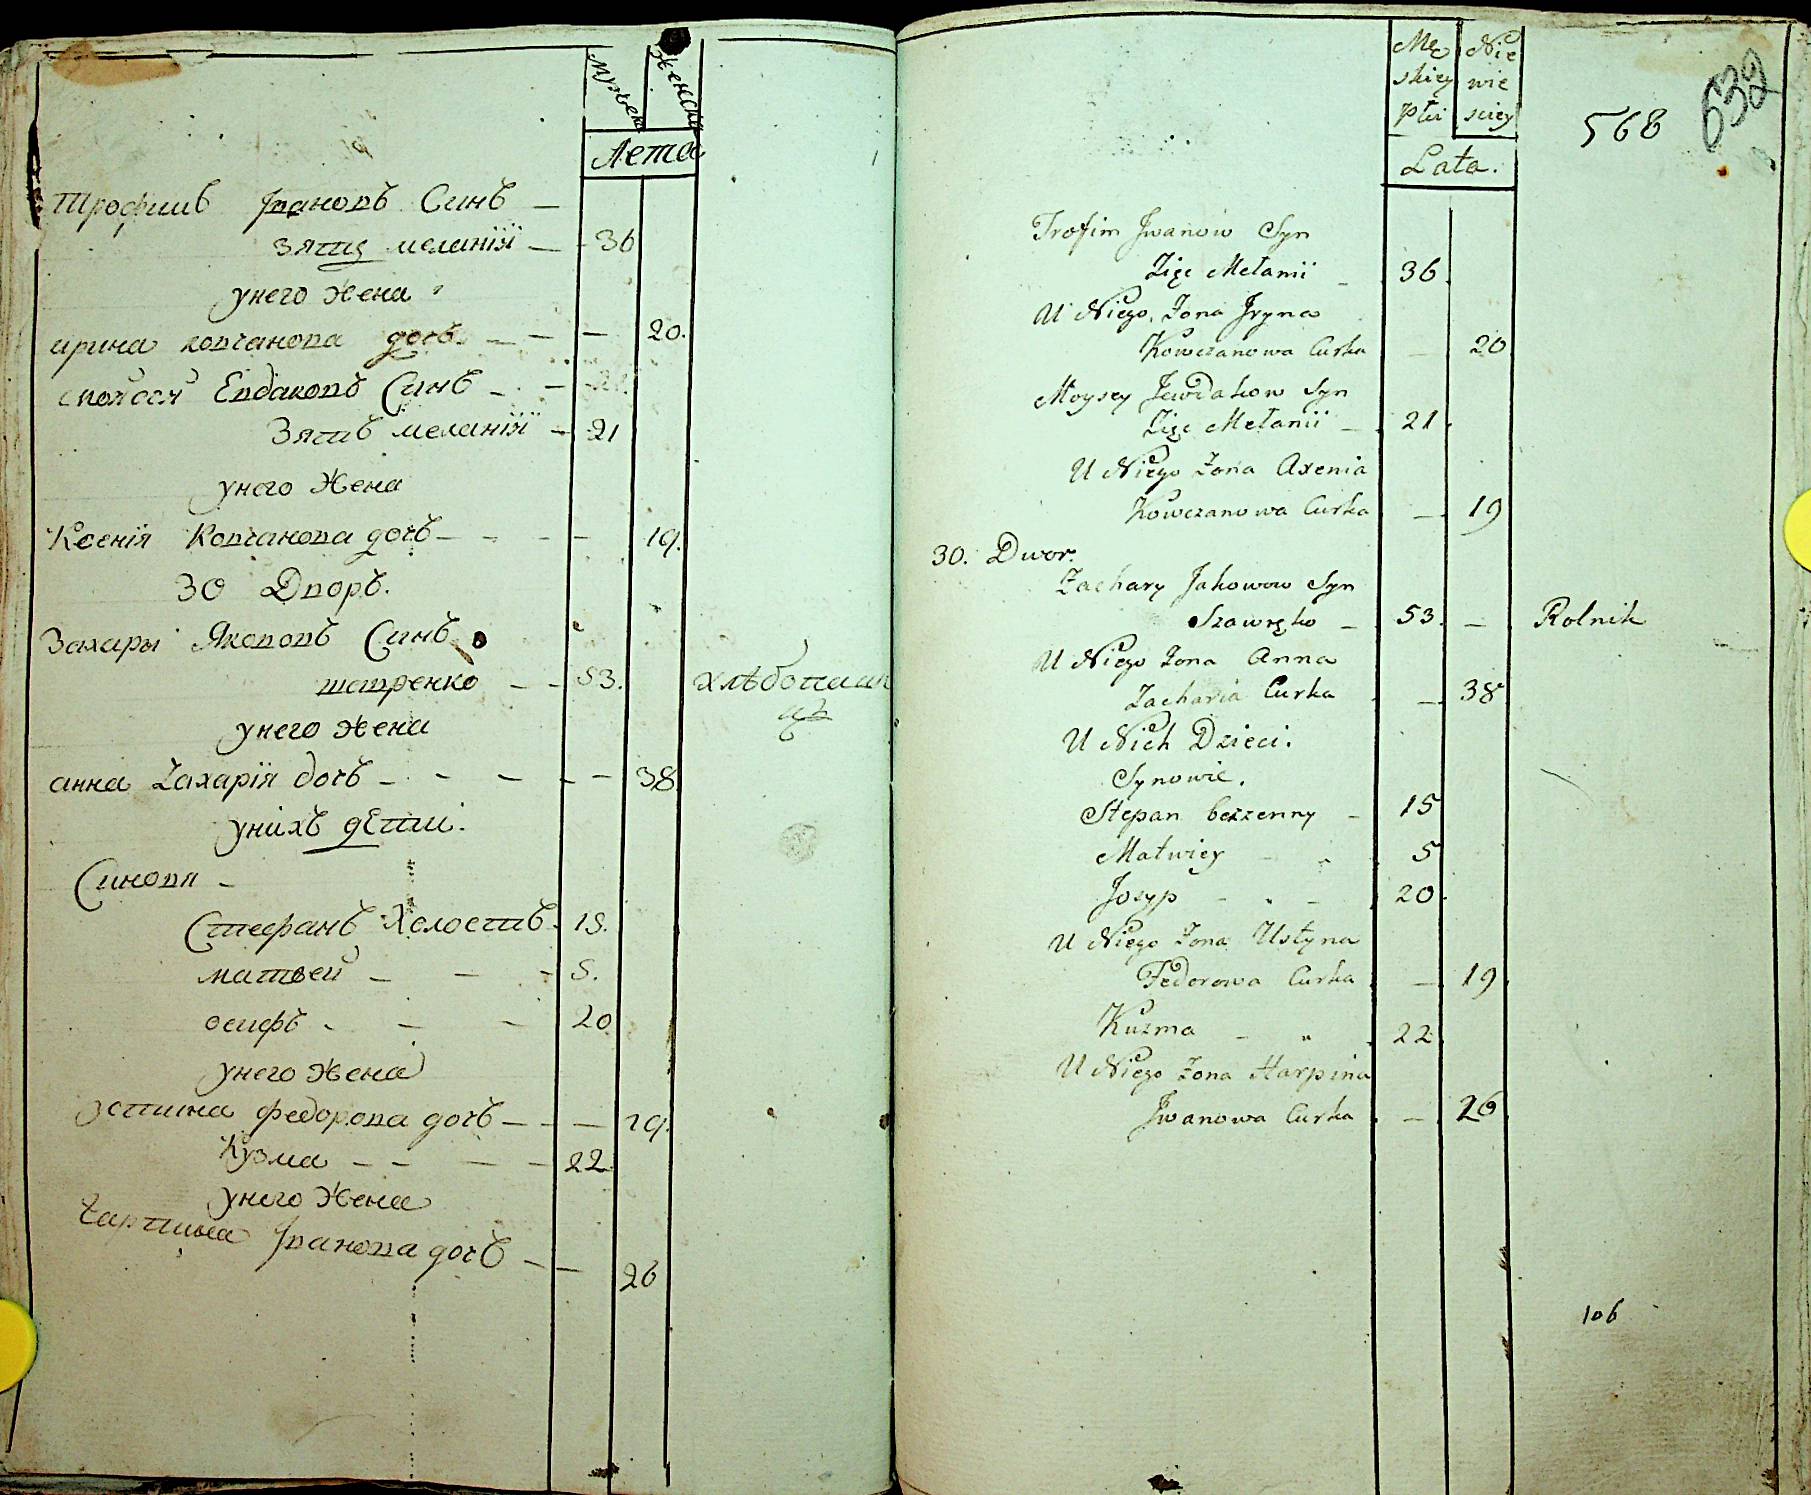 мужеска женска
Лета
Трофимъ Iвановъ Синъ —
зятъ меланїи — 36
унего жена
ирина ковчанова дочь — — 20.
моѵсей Евдаковъ Синъ —
Зятъ меланїи — 21
унего жена
Ксенїя Ковчанова дочъ — — 19.
30 Дворъ.
Захары Якововъ Синъ
— 53. хлѣбопашецъ
унего жена
анна Захарїя дочъ — — 38
унихъ дети.
Синовя —
Стефанъ Холостъ. 15.
матвей — 5.
осифъ — 20
унего жена
устина федорова дочъ — — 19.
Кузма — — 22
унего жена
Iванова дочъ — — 26
Męskiey Płci Niewiesciey
Lata.
568
632
Trofim Jwanow Syn
Zięc Mełanii — 36.
U Niego Zona Jryna
Kowczanowa Curka — 20
Moysey Jewdakow Syn
Zięc Mełanii — 21.
U Niego Zona Axenia
Kowczanowa Curka — 19
30. Dwor.
Zachary Jakowow Syn
Szawręko — 53. — Rolnik
U Niego Zona Anna
Zacharia Curka — 38
U Nich Dzieci.
Synowie.
Stepan bezzenny — 15
Matwiey — 5
Josyp — 20.
U Niego Zona Ustyna
Fedorowa Curka — 19
Kuzma — 22
U Niego Zona Harpina
Jwanowa Curka — 26
106